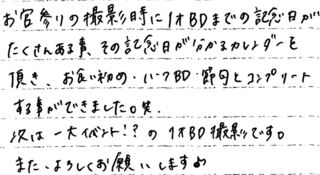 お宮参りの撮影時に1才BDまでの記念日が
たくさんある事、その記念日が分かるカレンダーを
頂き、お食い初め・ハーフBD・節句とコンプリート
する事ができました。笑。
次は一大イベント!?の1才BD撮影です。
また、よろしくお願いします